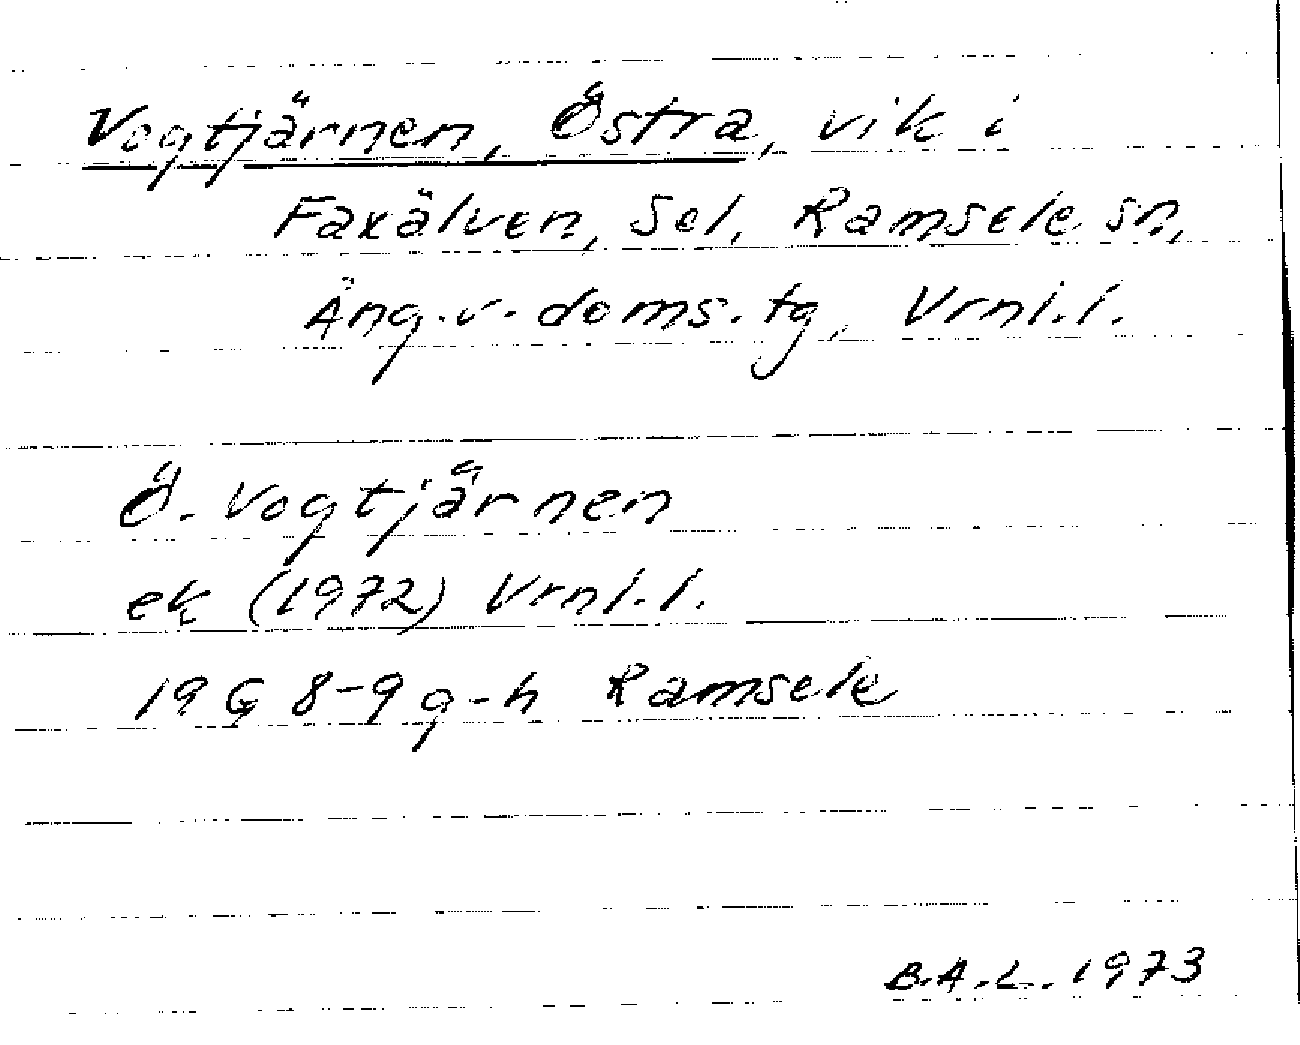 Vogtjärnen, Östra, vik i
Faxälven, Sel, Ramsele sn,
Ång. v. doms. tg, Vrnl. l.
Ö. Vogtjärnen
ek (1972) Vrnl. l.
19 G 8-9 g-h Ramsele
B.A.L. 1973